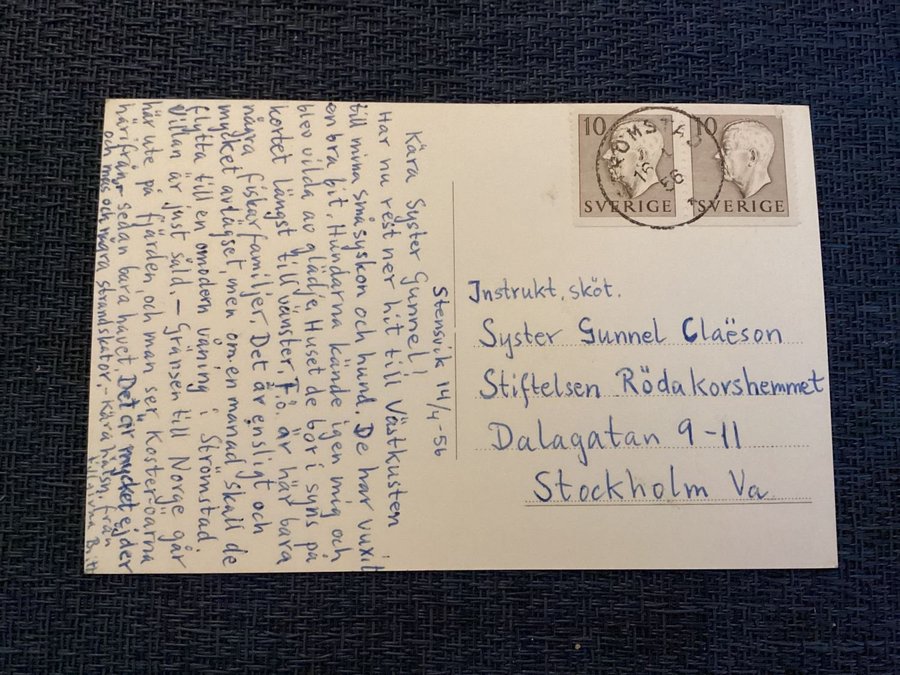 Stensvik 14/4 -56
Kära Syster Gunnel!
Har nu rest ner hit till Västkusten
till mina småsyskon och hund. De har vuxit
en bra bit. Hundarna kände igen mig och
blev vilda av glädje. Huset de bor i syns på
kortet längst till vänster, F.ö. är här bara
några fiskarfamiljer. Det är ensligt och
mycket avlägset, men om en månad skall de
flytta till en omodern våning i Strömstad.
Villan är just såld – Gränsen till Norge går
här ute på fjärden och man ser Koster-öarna
härifrån, sedan bara havet. Det är mycket ejder
och mås och några strandskator. – Kära hälsn. från
Britt
10 SVERIGE
10 SVERIGE
STRÖMSTAD
16
56
Instrukt. sköt.
Syster Gunnel Claëson
Stiftelsen Rödakorshemmet
Dalagatan 9-11
Stockholm Va.